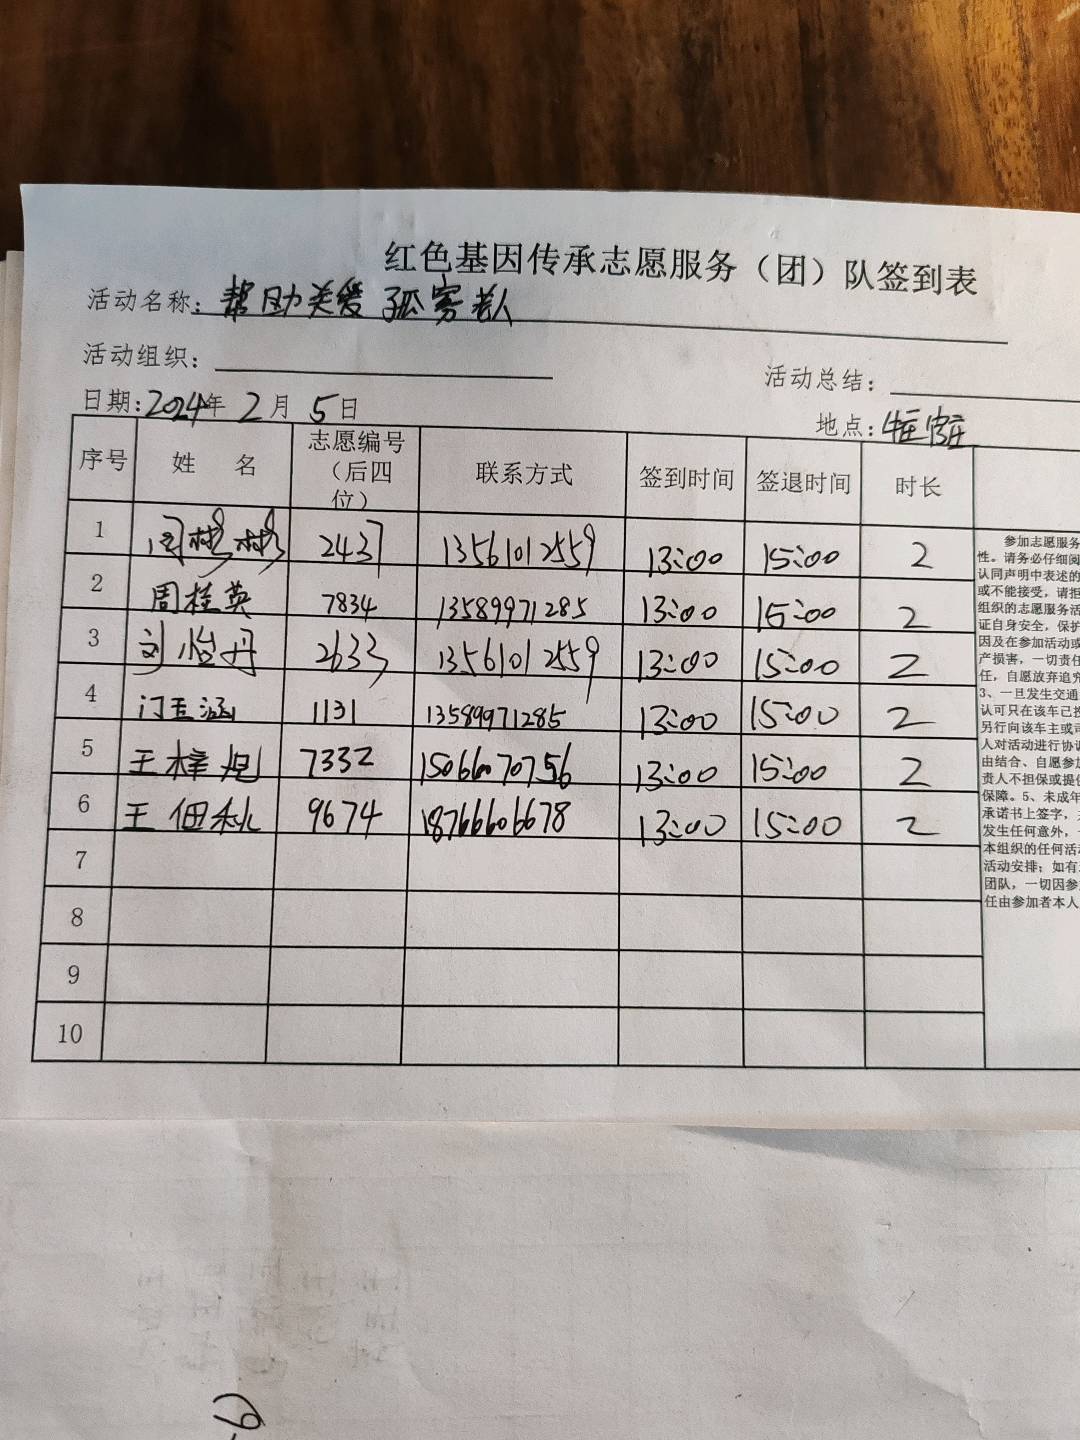 红色基因传承志愿服务（团）队签到表
活动名称：帮助关爱孤寡老人
活动组织：
活动总结：
日期：2024年 2月 5日
地点：
序号 姓 名 志愿编号（后四位） 联系方式 签到时间 签退时间 时长
1 闫彬彬 2437 13561012559 13:00 15:00 2
2 周桂英 7834 13589971285 13:00 15:00 2
3 刘怡丹 2633 13561012559 13:00 15:00 2
4 门玉涵 1131 13589971285 13:00 15:00 2
5 王梓 7332 15066070756 13:00 15:00 2
6 王佃秋 9674 18766606678 13:00 15:00 2
7
8
9
10
参加志愿服务
性。请务必仔细阅
认同声明中表述的
或不能接受，请拒
组织的志愿服务活
证自身安全，保护
因及在参加活动或
产损害，一切责任
任，自愿放弃追究
3、一旦发生交通
认可只在该车已投
另行向该车主或司
人对活动进行协调
由结合、自愿参加
责人不担保或提供
保障。5、未成年
承诺书上签字，
发生任何意外，
本组织的任何活动
活动安排；如有
团队，一切因参
任由参加者本人